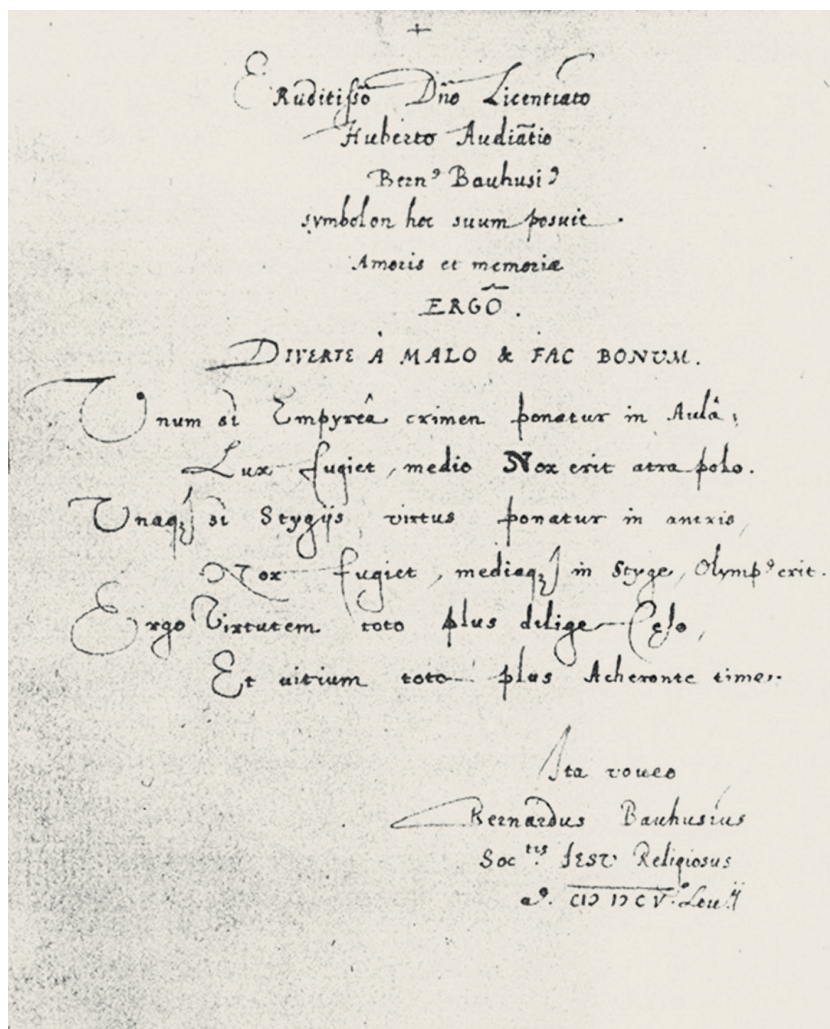 +
Eruditissō Dn̄o Licentiato
Huberto Audiātio
Bernꝰ Bauhusiꝰ
symbolon hoc suum posuit.
Amoris et memoriæ
ERGÔ.
DIVERTE À MALO & FAC BONUM.
Unum si Empyreâ crimen ponatur in Aulâ;
Lux fugiet, medio Nox erit atra polo.
Unaqꝫ si Stygijs virtus ponatur in antris,
Nox fugiet, mediaqꝫ in Styge, Olympꝰ erit.
Ergo Virtutem toto plus dilige Cęlo,
Et uitium toto plus Acheronte time.
Ita voueo
Bernardus Bauhusius
Soc.tis IESU Religiosus
aº. CIↃ IↃ CV. Lou